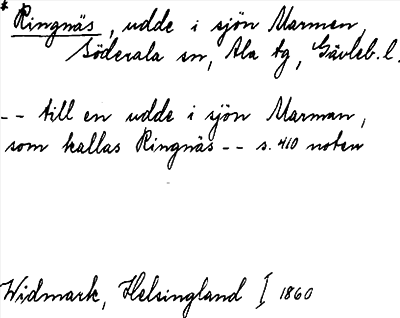 * Ringnäs, udde i sjön Marmen,
Söderala sn, Ala tg, Gävleb. l.
-- till en udde i sjön Marman,
som kallas Ringnäs -- s. 410 noten
Widmark, Helsingland I 1860